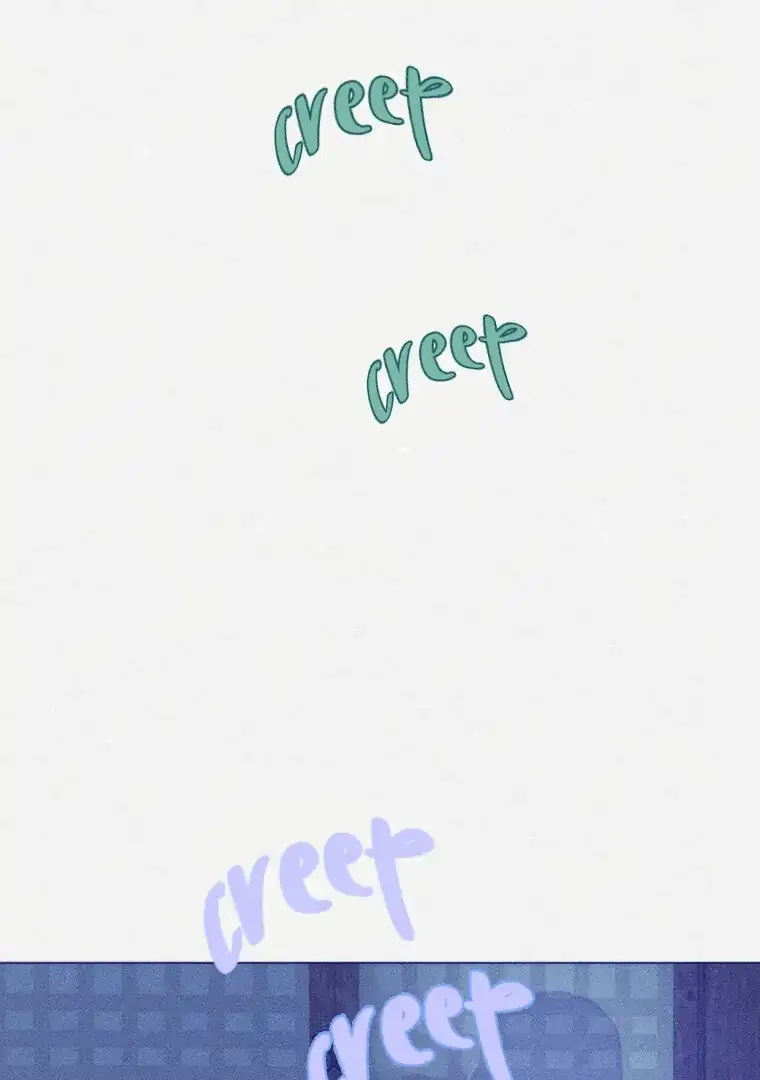 creep
creep
creep
creep